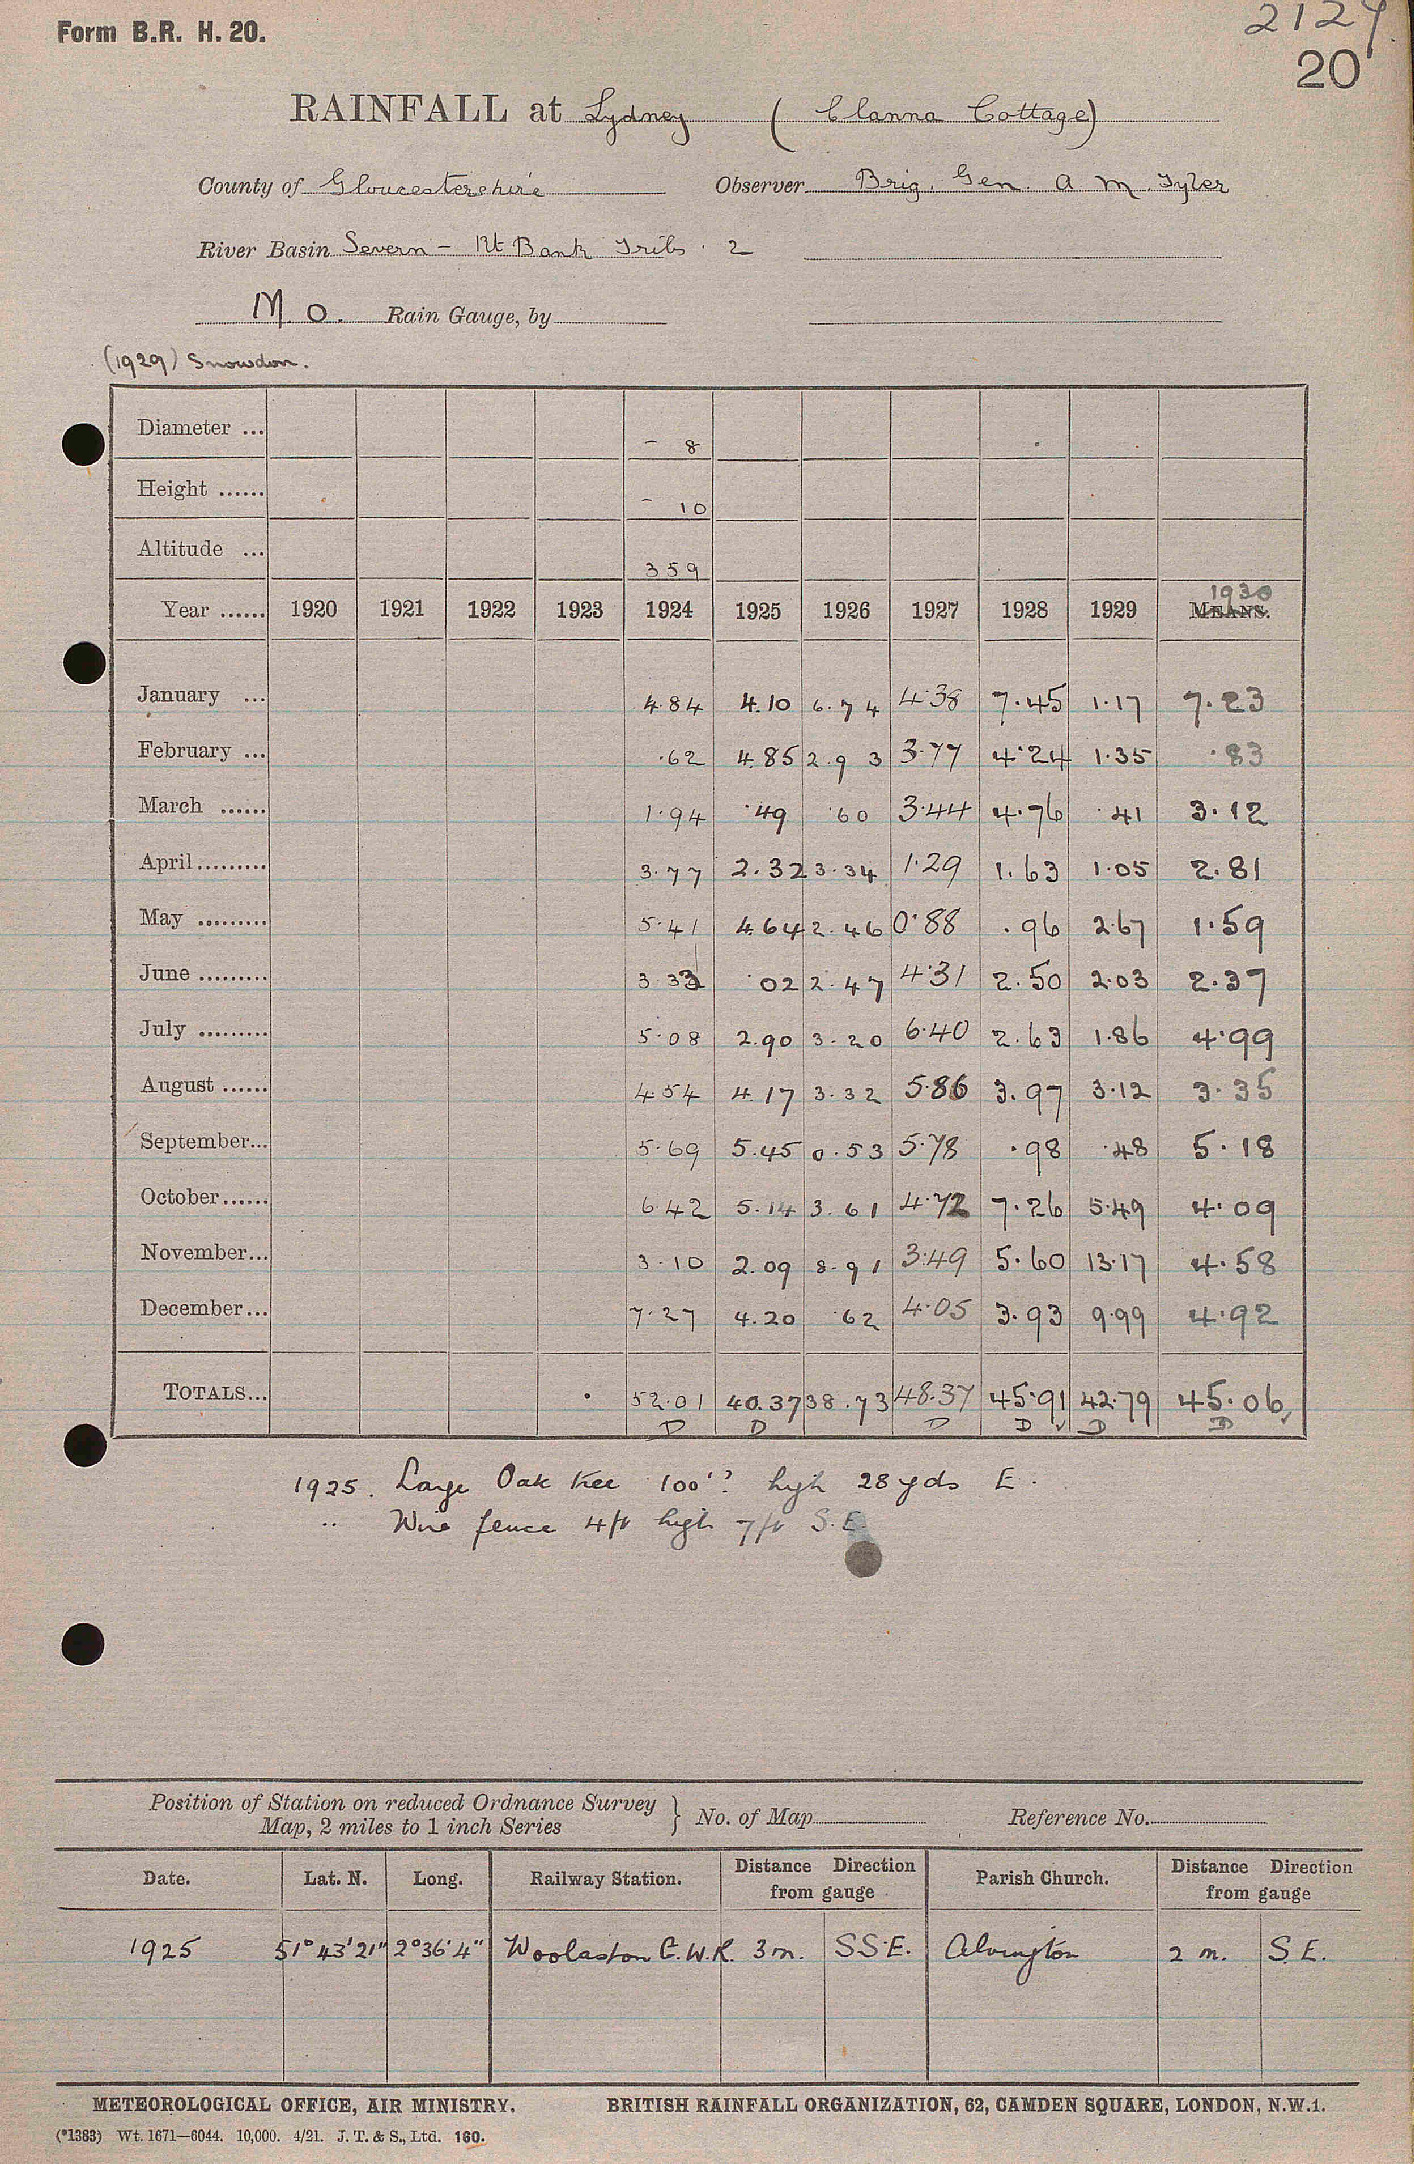 Form B.R. H. 20.
2124
20
RAINFALL at Lydney (Clanna Cottage)
County of Gloucestershire Observer Brig. Gen. A M Tyler
River Basin Severn - Rt Bank Tribs. 2
M O. Rain Gauge, by
(1929) Snowdon.
Diameter ... - 8
Height ...... - 10
Altitude ... 359
1930
Year ...... 1920 1921 1922 1923 1924 1925 1926 1927 1928 1929 MEANS.
January ... 4.84 4.10 6.74 4.38 7.45 1.17 7.23
February ... .62 4.85 2.93 3.77 4.24 1.35 .83
March ...... 1.94 .49 .60 3.44 4.76 .41 3.12
April ......... 3.77 2.32 3.34 1.29 1.63 1.05 2.81
May ......... 5.41 4.64 2.46 0.88 .96 2.67 1.59
June ......... 3.33 .02 2.47 4.31 2.50 2.03 2.37
July ......... 5.08 2.90 3.20 6.40 2.63 1.86 4.99
August ...... 4.54 4.17 3.32 5.86 3.97 3.12 3.35
September... 5.69 5.45 0.53 5.78 .98 .48 5.18
October...... 6.42 5.14 3.61 4.72 7.26 5.49 4.09
November... 3.10 2.09 8.91 3.49 5.60 13.17 4.58
December... 7.27 4.20 .62 4.05 3.93 9.99 4.92
TOTALS... 52.01 40.37 38.73 48.37 45.91 42.79 45.06
D D D D D D
1925. Large Oak tree 100'? high 28 yds E.
" Wire fence 4 ft high 7 ft S.E.
Position of Station on reduced Ordnance Survey
Map, 2 miles to 1 inch Series } No. of Map Reference No.
Date. Lat. N. Long. Railway Station. Distance Direction from gauge Parish Church. Distance Direction from gauge
1925 51° 43' 21" 2° 36' 4" Woolaston G.W.R. 3 m. S S E. Alvington 2 m. S.E.
METEOROLOGICAL OFFICE, AIR MINISTRY. BRITISH RAINFALL ORGANIZATION, 62, CAMDEN SQUARE, LONDON, N.W.1.
(*1383) Wt. 1671—6044. 10,000. 4/21. J. T. & S., Ltd. 160.